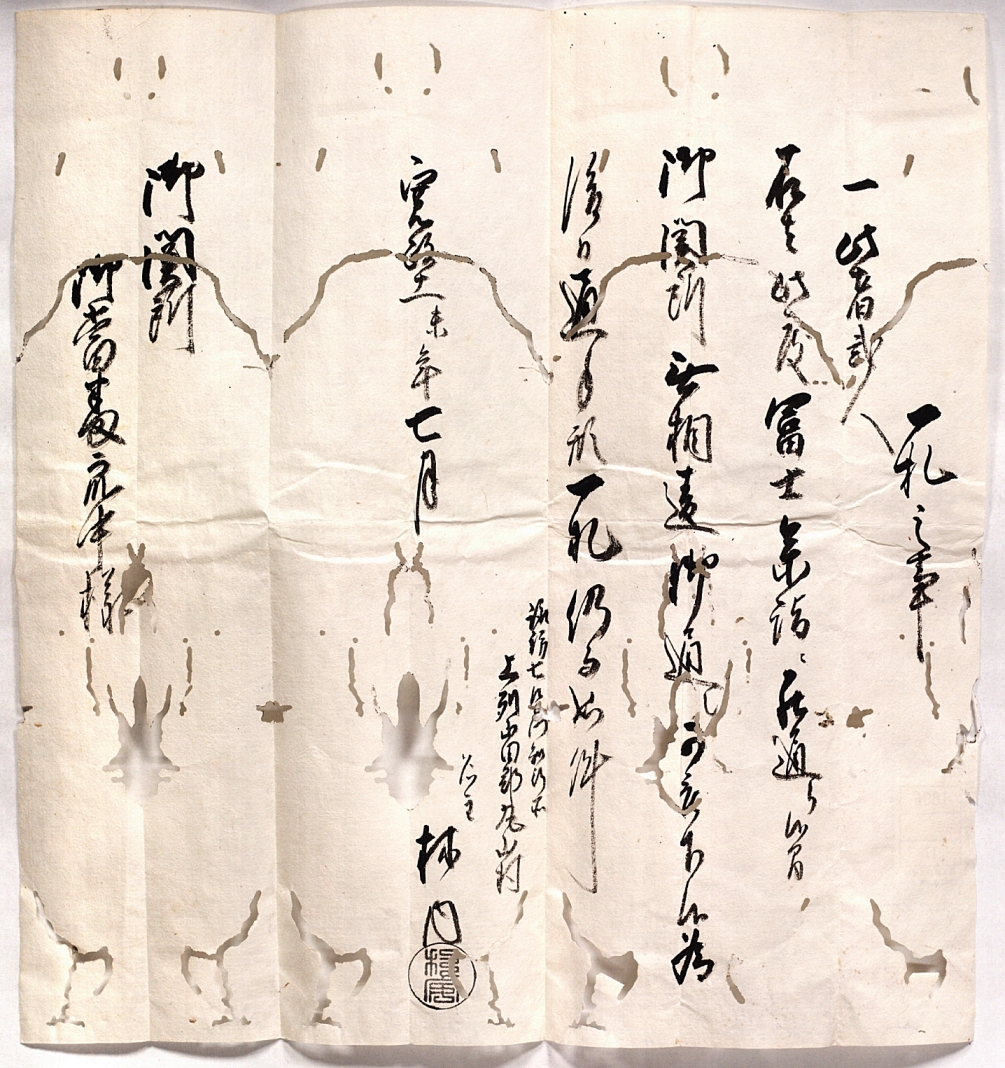 一札之事
一此者弐人
右者此度富士参詣ニ罷通り候間
御関所無相違御通し可被下候為
後日通手形一札仍而如件
知行所
上州山田郡丸山村
名主
林内
寛政十一未年七月
御関所
御当番衆中様